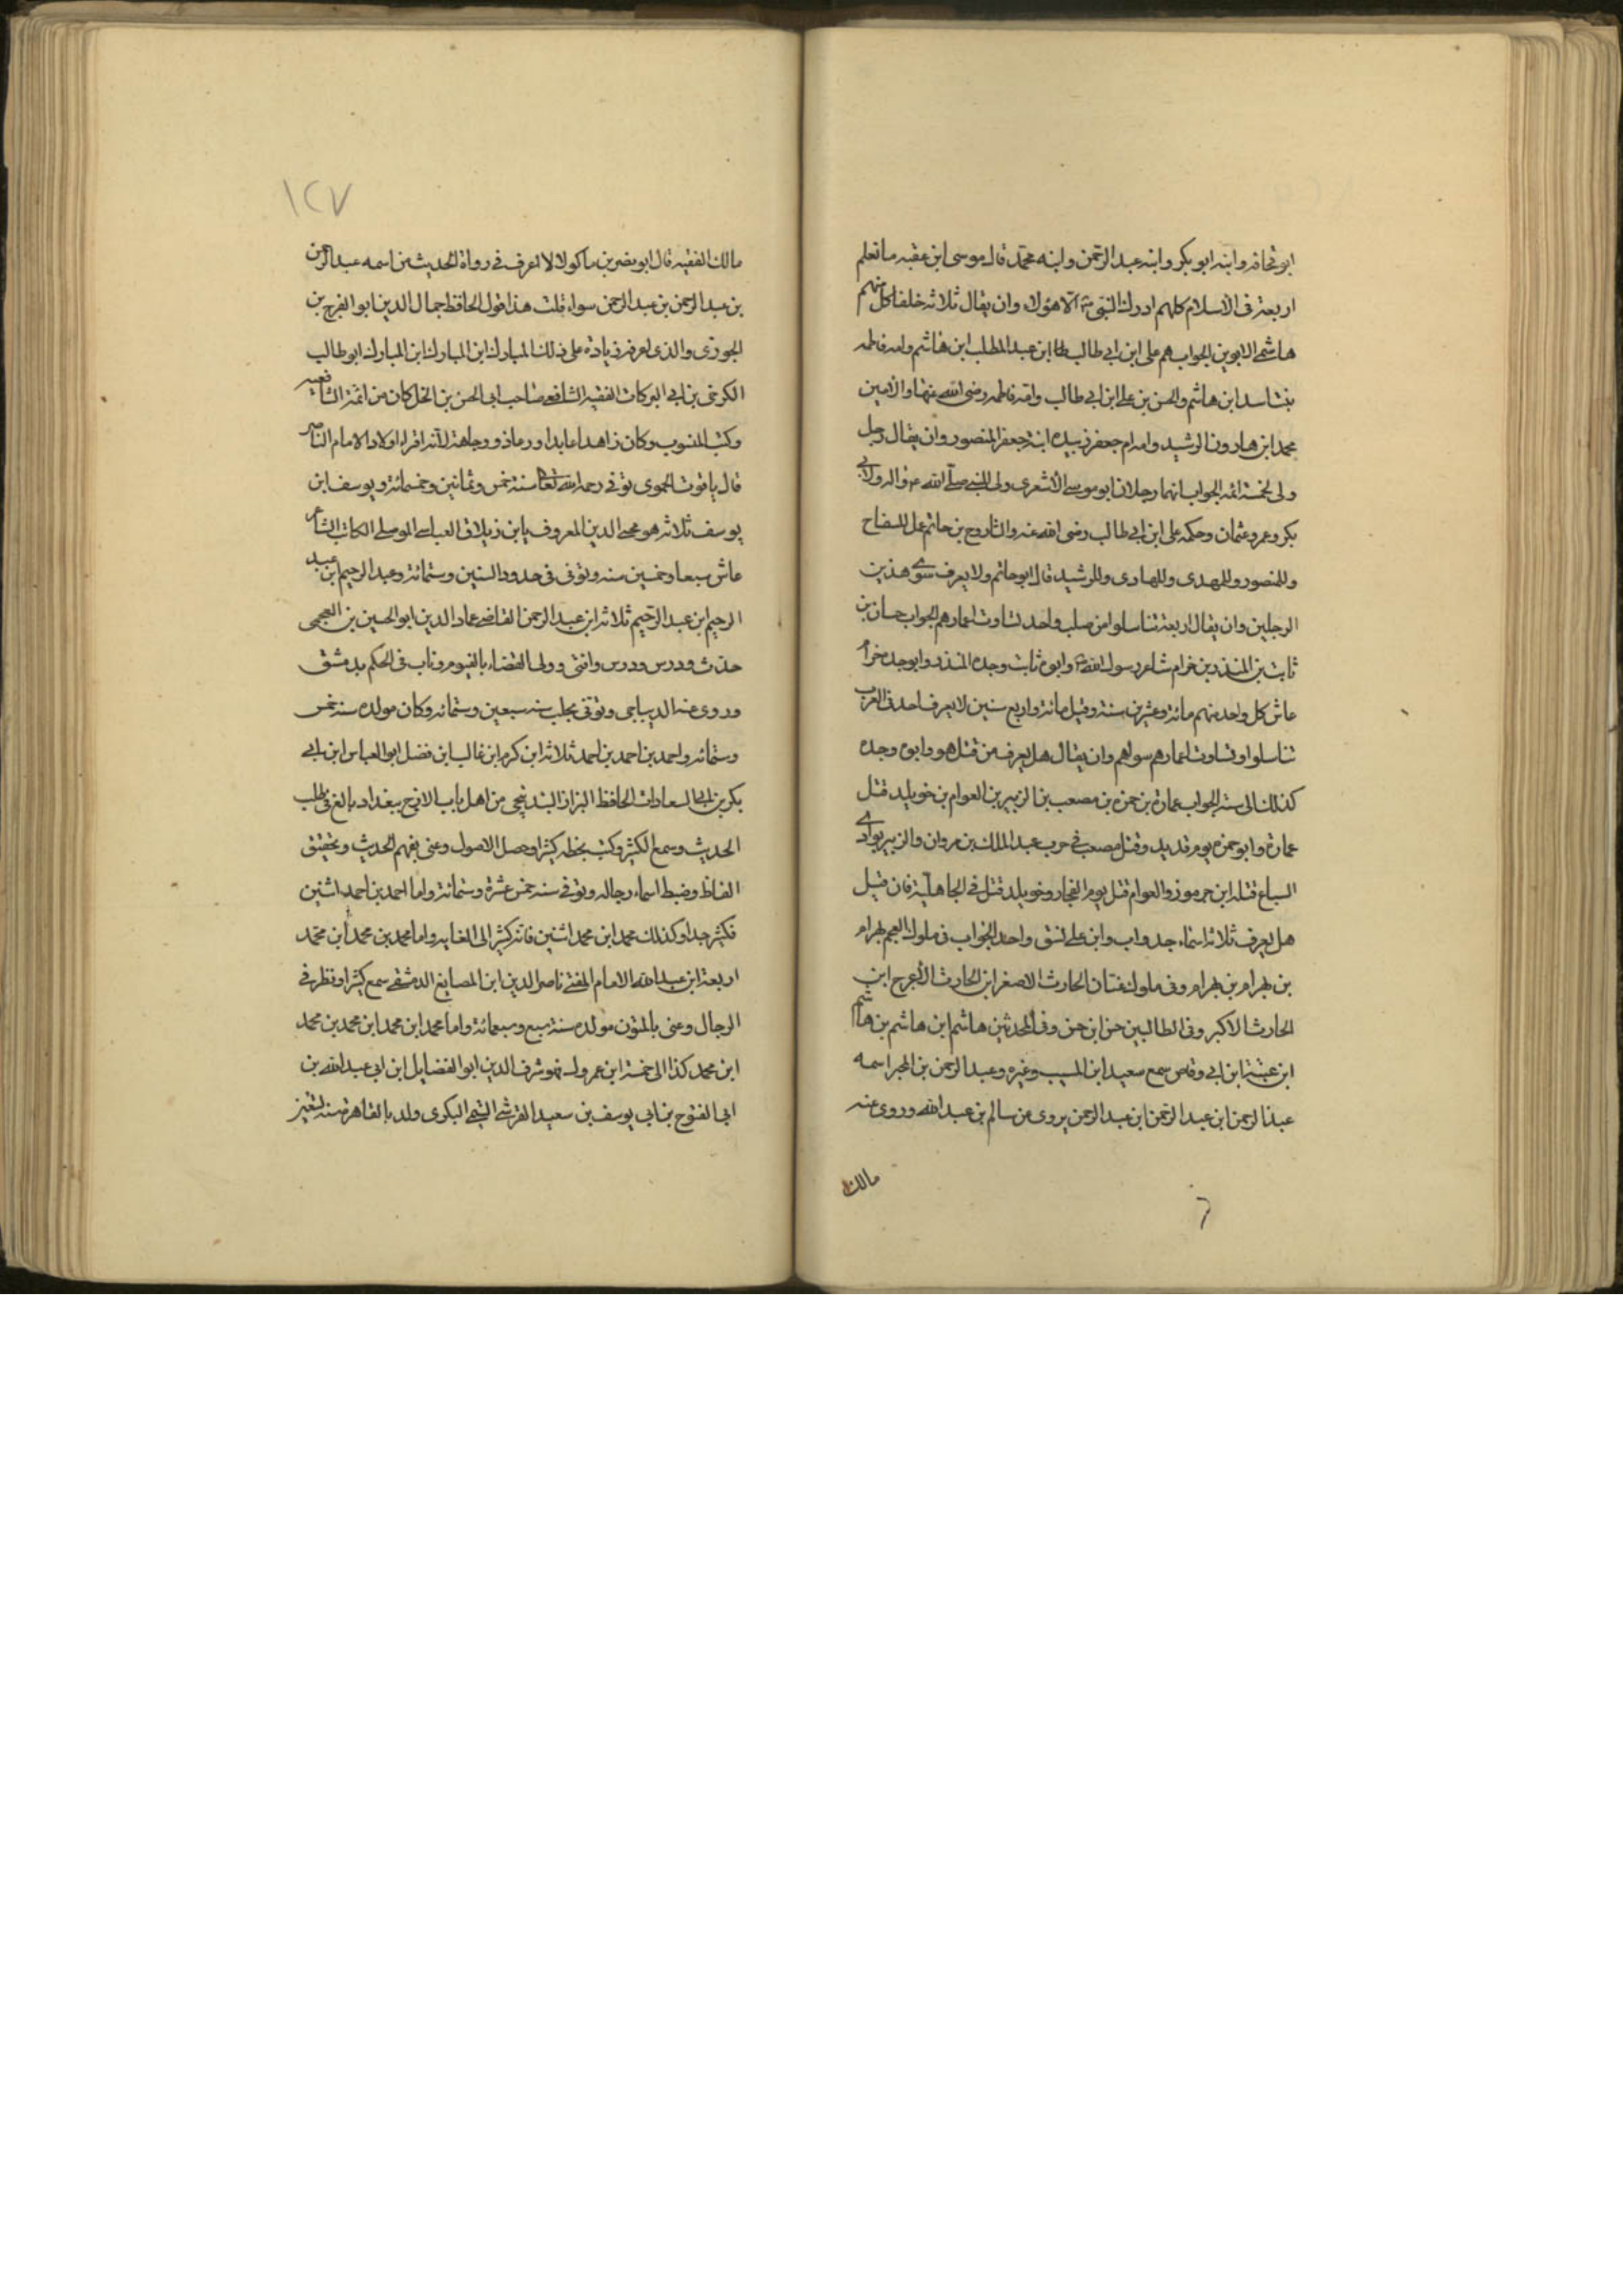 ابو قحافه وابنه ابو بكر وابنه عبد الرحمن وابنه محمد قال موسى ابن عقبه ما نعلم
اربعة فى الاسلام كلهم ادرك النبى الا هؤلاء وان يقال ثلاثه خلفا كل منهم
هاشمى الابوين الجواب هم على ابن ابى طالب ابن عبد المطلب ابن هاشم وامه فاطمه
بنت اسد ابن هاشم والحسن بن على ابن ابى طالب وامه فاطمه رضى الله عنها والامين
محمد ابن هارون الرشيد وامه ام جعفر زبيده ابنة جعفر المنصور وان يقال رجل
ولى لخمسة ائمه الجواب انهما رجلان ابو موسى الاشعرى ولى للنبى صلى الله واله ولابى
بكر وعمر وعثمان وحكمه على ابن ابى طالب رضى الله عنه والثا روح بن حاتم عمل للسفاح
وللمنصور وللمهدى وللهادى وللرشيد قال ابو حاتم ولا يعرف سوى هذين
الرجلين وان يقال اربعة تناسلوا من صلب واحد تساوت اعمارهم الجواب حسان بن
ثابت بن المنذر بن خرام شاعر رسول الله وابوه ثابت وجده المنذر وابو جده خرام
عاش كل واحد منهم مائة وعشرين سنة وقيل مائة واربع سنين لا يعرف احد فى العرب
تناسلوا وتساوت اعمارهم سواهم وان يقال هل يعرف من قتل هو وابوه وجده
كذلك الى سته الجواب عمارة بن حمزه بن مصعب بن الزبير بن العوام بن خويلد قتل
عمارة وابو حمزه يوم قديد وقتل مصعب فى حرب عبد الملك بن مروان والزبير بوادى
السباع قتله ابن جرموز والعوام قتل يوم الفجار وخويلد قتل فى الجاهلية فان قيل
هل يعرف ثلاثة اسماء جد واب وابن على نسق واحد الجواب فى ملوك العجم بهرام
بن بهرام بن بهرام وفى ملوك غسان الحارث الاصغر ابن الحارث الاعرج ابن
الحارث الاكبر وفى الطالبين حسن ابن حسن وفى المحدثين هاشم ابن هاشم بن هاشم
ابن عتبة ابن ابى وقاص سمع سعيد ابن المسيب وغيره وعبد الرحمن بن المجبر اسمه
عبد الرحمن ابن عبد الرحمن ابن عبد الرحمن يروى عن سالم بن عبد الله وروى عنه
مالك
٦
١٢٧
مالك الفقيه قال ابو نصر بن ماكولا لا اعرف فى رواة الحديث من اسمه عبد الرحمن
بن عبد الرحمن بن عبد الرحمن سواه قلت هذا قول الحافظ جمال الدين ابو الفرج بن
الجوزى والذى اعرفه زيادة على ذلك المبارك ابن المبارك ابن المبارك ابو طالب
الكرخى بن ابى البركات الفقيه الشافعى صاحب ابى الحسن بن الخل كان من ائمة الشافعيه
وكتب المنسوب وكان زاهدا عابدا ورعا ذو وجاهة لانه اقراء اولاد الامام الناصر
قال ياقوت الحموى توفى رحمه الله تعالى سنة خمس وثمانين وخمسمائة ويوسف ابن
يوسف ثلاثه هو محى الدين المعروف بابن زيلاق العباسى الموصلى الكاتب الشاعر
عاش سبعا وخمسين سنه وتوفى فى حدود الستين وستمائة وعبد الرحيم ابن عبد
الرحيم ابن عبد الرحيم ثلاثة ابن عبد الرحمن القاضى عماد الدين ابو الحسين بن العجمى
حدث ودرس ودرس وافتى وولى القضاء بالفيوم وناب فى الحكم بدمشق
وروى عنه الدمياطى وتوفى بحلب سنه سبعين وستمائه وكان مولده سنه خمس
وستمائه واحمد بن احمد بن احمد ثلاثه ابن كرم ابن غالب ابن فضل ابو العباس ابن ابى
بكر بن ابى السعادات الحافظ البزاز البندنيجى من اهل باب الازج ببغداد بالغ فى طلب
الحديث وسمع الكثير وكتب بخطه كثيرا وحصل الاصول وعنى بفهم الحديث وتحقيق
الفاظ وضبط اسماء رجاله وتوفى سنه خمس عشرة وستمائة واما احمد بن احمد اثنين
فكثير جدا وكذلك محمد ابن محمد اثنين فانه كثير الى الغايه واما محمد بن محمد ابن محمد
اربعة ابن عبد الله الامام المفتى ناصر الدين ابن المصايغ الدمشقى سمع كثيرا ونظر فى
الرجال وعنى بالمتون مولده سنة سبع وسبعمائة واما محمد ابن محمد ابن محمد بن محمد
ابن محمد كذا الى خمسة ابن عمروك فهو شرف الدين ابو الفضايل ابن ابى عبد الله بن
ابى الفتوح بن ابى يوسف بن سعيد القرشى التيمى البكرى ولد بالقاهرة سنه